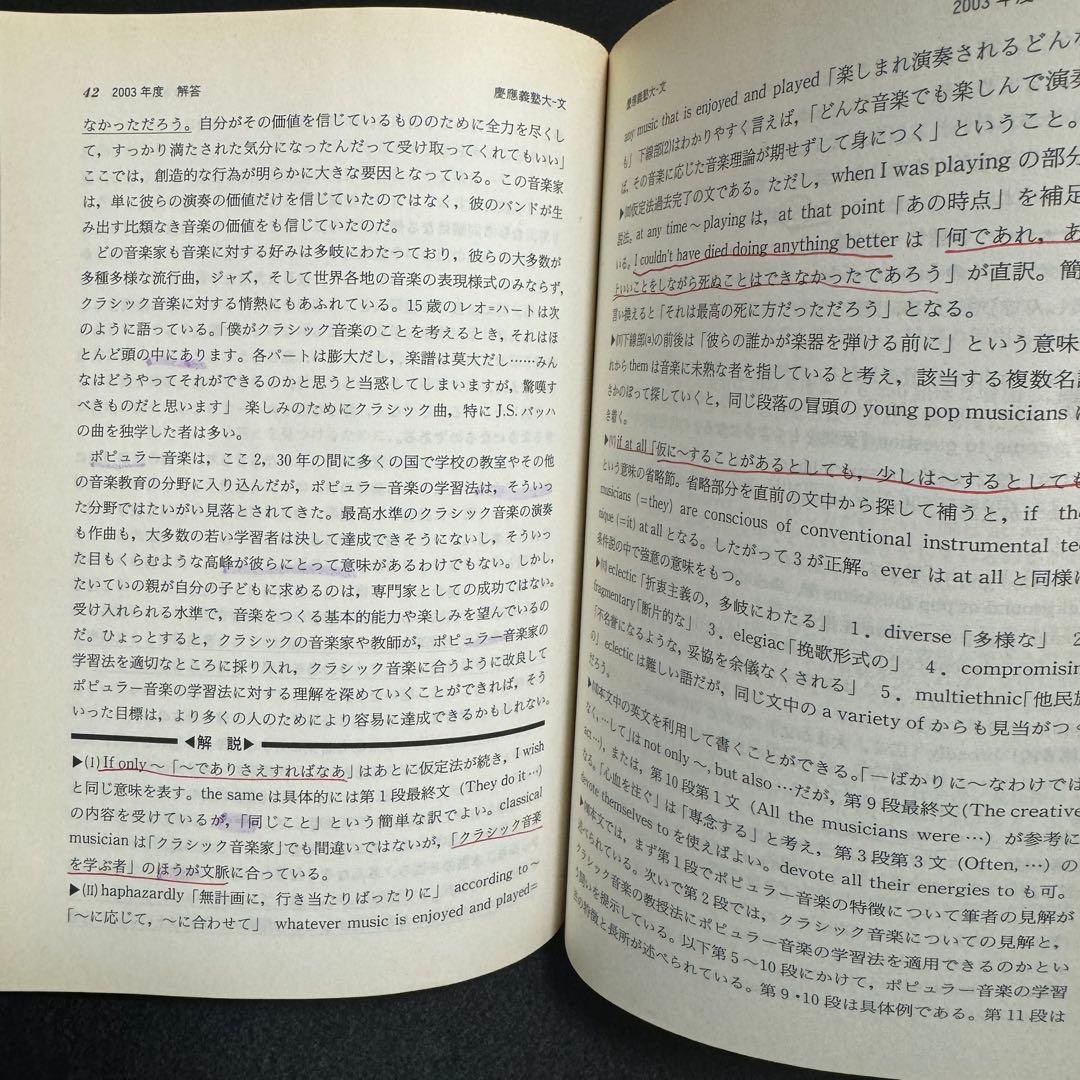 42 2003年度 解答 慶應義塾大-文
なかっただろう。自分がその価値を信じているもののために全力を尽くし
て，すっかり満たされた気分になったんだって受け取ってくれてもいい」
ここでは，創造的な行為が明らかに大きな要因となっている。この音楽家
は，単に彼らの演奏の価値だけを信じていたのではなく，彼のバンドが生
み出す比類なき音楽の価値をも信じていたのだ。
どの音楽家も音楽に対する好みは多岐にわたっており，彼らの大多数が
多種多様な流行曲，ジャズ，そして世界各地の音楽の表現様式のみならず，
クラシック音楽に対する情熱にもあふれている。15歳のレオ=ハートは次
のように語っている。「僕がクラシック音楽のことを考えるとき，それはほ
とんど頭の中にあります。各パートは膨大だし，楽譜は莫大だし……みん
なはどうやってそれができるのかと思うと当惑してしまいますが，驚嘆す
べきものだと思います」 楽しみのためにクラシック曲，特にJ.S.バッハ
の曲を独学した者は多い。
ポピュラー音楽は，ここ2，30年の間に多くの国で学校の教室やその他
の音楽教育の分野に入り込んだが，ポピュラー音楽の学習法は，そういっ
た分野ではたいがい見落とされてきた。最高水準のクラシック音楽の演奏
も作曲も，大多数の若い学習者は決して達成できそうにないし，そういっ
た目もくらむような高峰が彼らにとって意味があるわけでもない。しかし，
たいていの親が自分の子どもに求めるのは，専門家としての成功ではない。
受け入れられる水準で，音楽をつくる基本的能力や楽しみを望んでいるの
だ。ひょっとすると，クラシックの音楽家や教師が，ポピュラー音楽家の
学習法を適切なところに採り入れ，クラシック音楽に合うように改良して
ポピュラー音楽の学習法に対する理解を深めていくことができれば，そう
いった目標は，より多くの人のためにより容易に達成できるかもしれない。
◀解 説▶
▶(Ⅰ)If only～「～でありさえすればなあ」はあとに仮定法が続き，I wish
と同じ意味を表す。the sameは具体的には第1段最終文（They do it…）
の内容を受けているが，「同じこと」という簡単な訳でよい。classical
musicianは「クラシック音楽家」でも間違いではないが，「クラシック音楽
を学ぶ者」のほうが文脈に合っている。
▶(Ⅱ)haphazardly「無計画に，行き当たりばったりに」 according to～
「～に応じて，～に合わせて」 whatever music is enjoyed and played=
2003年度
慶應義塾大-文
any music that is enjoyed and played「楽しまれ演奏されるどんな
も」下線部(2)はわかりやすく言えば，「どんな音楽でも楽しんで演奏
ば，その音楽に応じた音楽理論が期せずして身につく」ということ。
仮定法過去完了の文である。ただし，when I was playingの部分
説法。at any time～playingは，at that point「あの時点」を補足
いる。I couldn't have died doing anything betterは「何であれ，あ
よいことをしながら死ぬことはできなかったであろう」が直訳。簡
言い換えると「それは最高の死に方だっただろう」となる。
下線部(a)の前後は「彼らの誰かが楽器を弾ける前に」という意味
れからthemは音楽に未熟な者を指していると考え，該当する複数名詞
さかのぼって探していくと，同じ段落の冒頭のyoung pop musiciansに
き着く。
if at all「仮に～することがあるとしても，少しは～するとしても
という意味の省略節。省略部分を直前の文中から探して補うと，if the
musicians (=they) are conscious of conventional instrumental tec
nique (=it) at allとなる。したがって3が正解。everはat allと同様に
条件説の中で強意の意味をもつ。
eclectic「折衷主義の，多岐にわたる」 1．diverse「多様な」 2
fragmentary「断片的な」 3．elegiac「挽歌形式の」 4．compromising
「不名誉になるような，妥協を余儀なくされる」 5．multiethnic「他民族
の」eclecticは難しい語だが，同じ文中のa variety ofからも見当がつく
だろう。
本文中の英文を利用して書くことができる。「―ばかりに～なわけでは
なく，…して」はnot only～, but also…だが，第9段最終文（The creative
act…），または，第10段第1文（All the musicians were…）が参考に
なる。「心血を注ぐ」は「専念する」と考え，第3段第3文（Often, …）の
devote themselves toを使えばよい。devote all their energies toも可。
本文では，まず第1段でポピュラー音楽の特徴について筆者の見解が
述べられている。次いで第2段では，クラシック音楽についての見解と，
クラシック音楽の教授法にポピュラー音楽の学習法を適用できるのかとい
う問いを提示している。以下第5～10段にかけて，ポピュラー音楽の学習
法の特徴と長所が述べられている。第9・10段は具体例である。第11段は